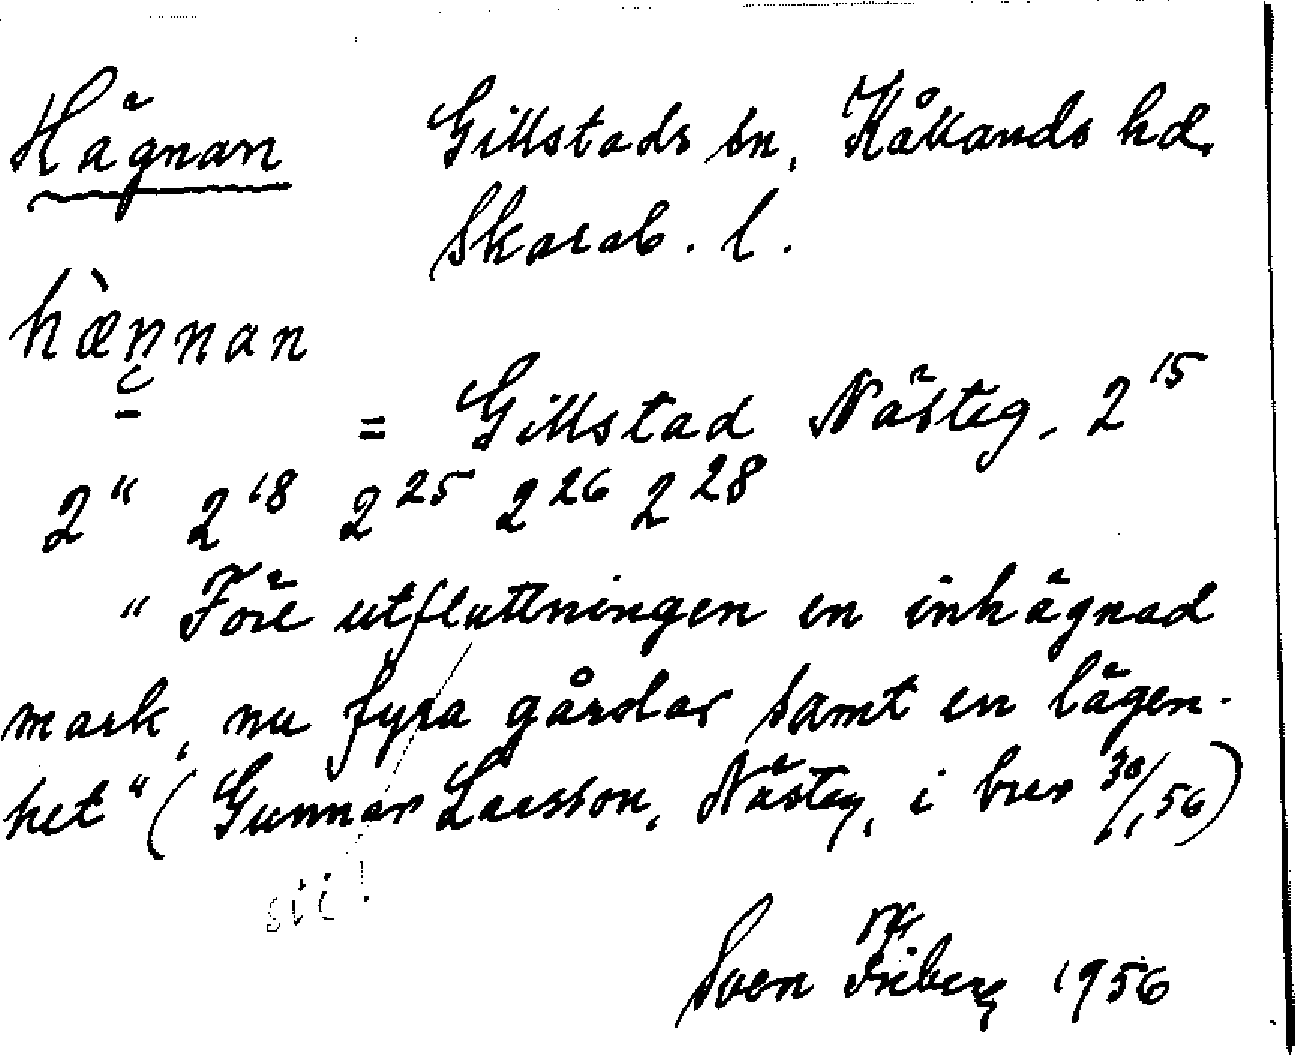 Hägnan Gillstads sn, Kållands hd,
Skarab. l.
hæ̀nnan
= Gillstad Nästeg, 2¹⁵
2" 2¹⁸ 2²⁵ 2²⁶ 2²⁸
"Före utfluttningen en inhägnad
mark, nu fyra gårdar samt en lägen-
het" (Gunnar Larsson, Nästeg, i brev 30/11 56)
sic!
Sven Friberg 1956